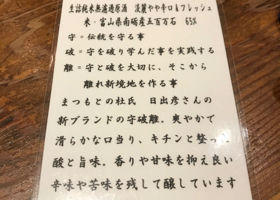 生詰純米無濾過原酒 淡麗やや辛口＆フレッシュ
米・富山県南砺産五百万石 65%
守＝伝統を守る事
破＝守を破り学んだ事を実践する
離＝守と破を大切に、そこから
離れ新境地を作る事
まつもとの杜氏 日出彦さんの
新ブランドの守破離。爽やかで
滑らかな口当り、キチンと整った
酸と旨味。香りや甘味を抑え良い
辛味や苦味を残して醸しています